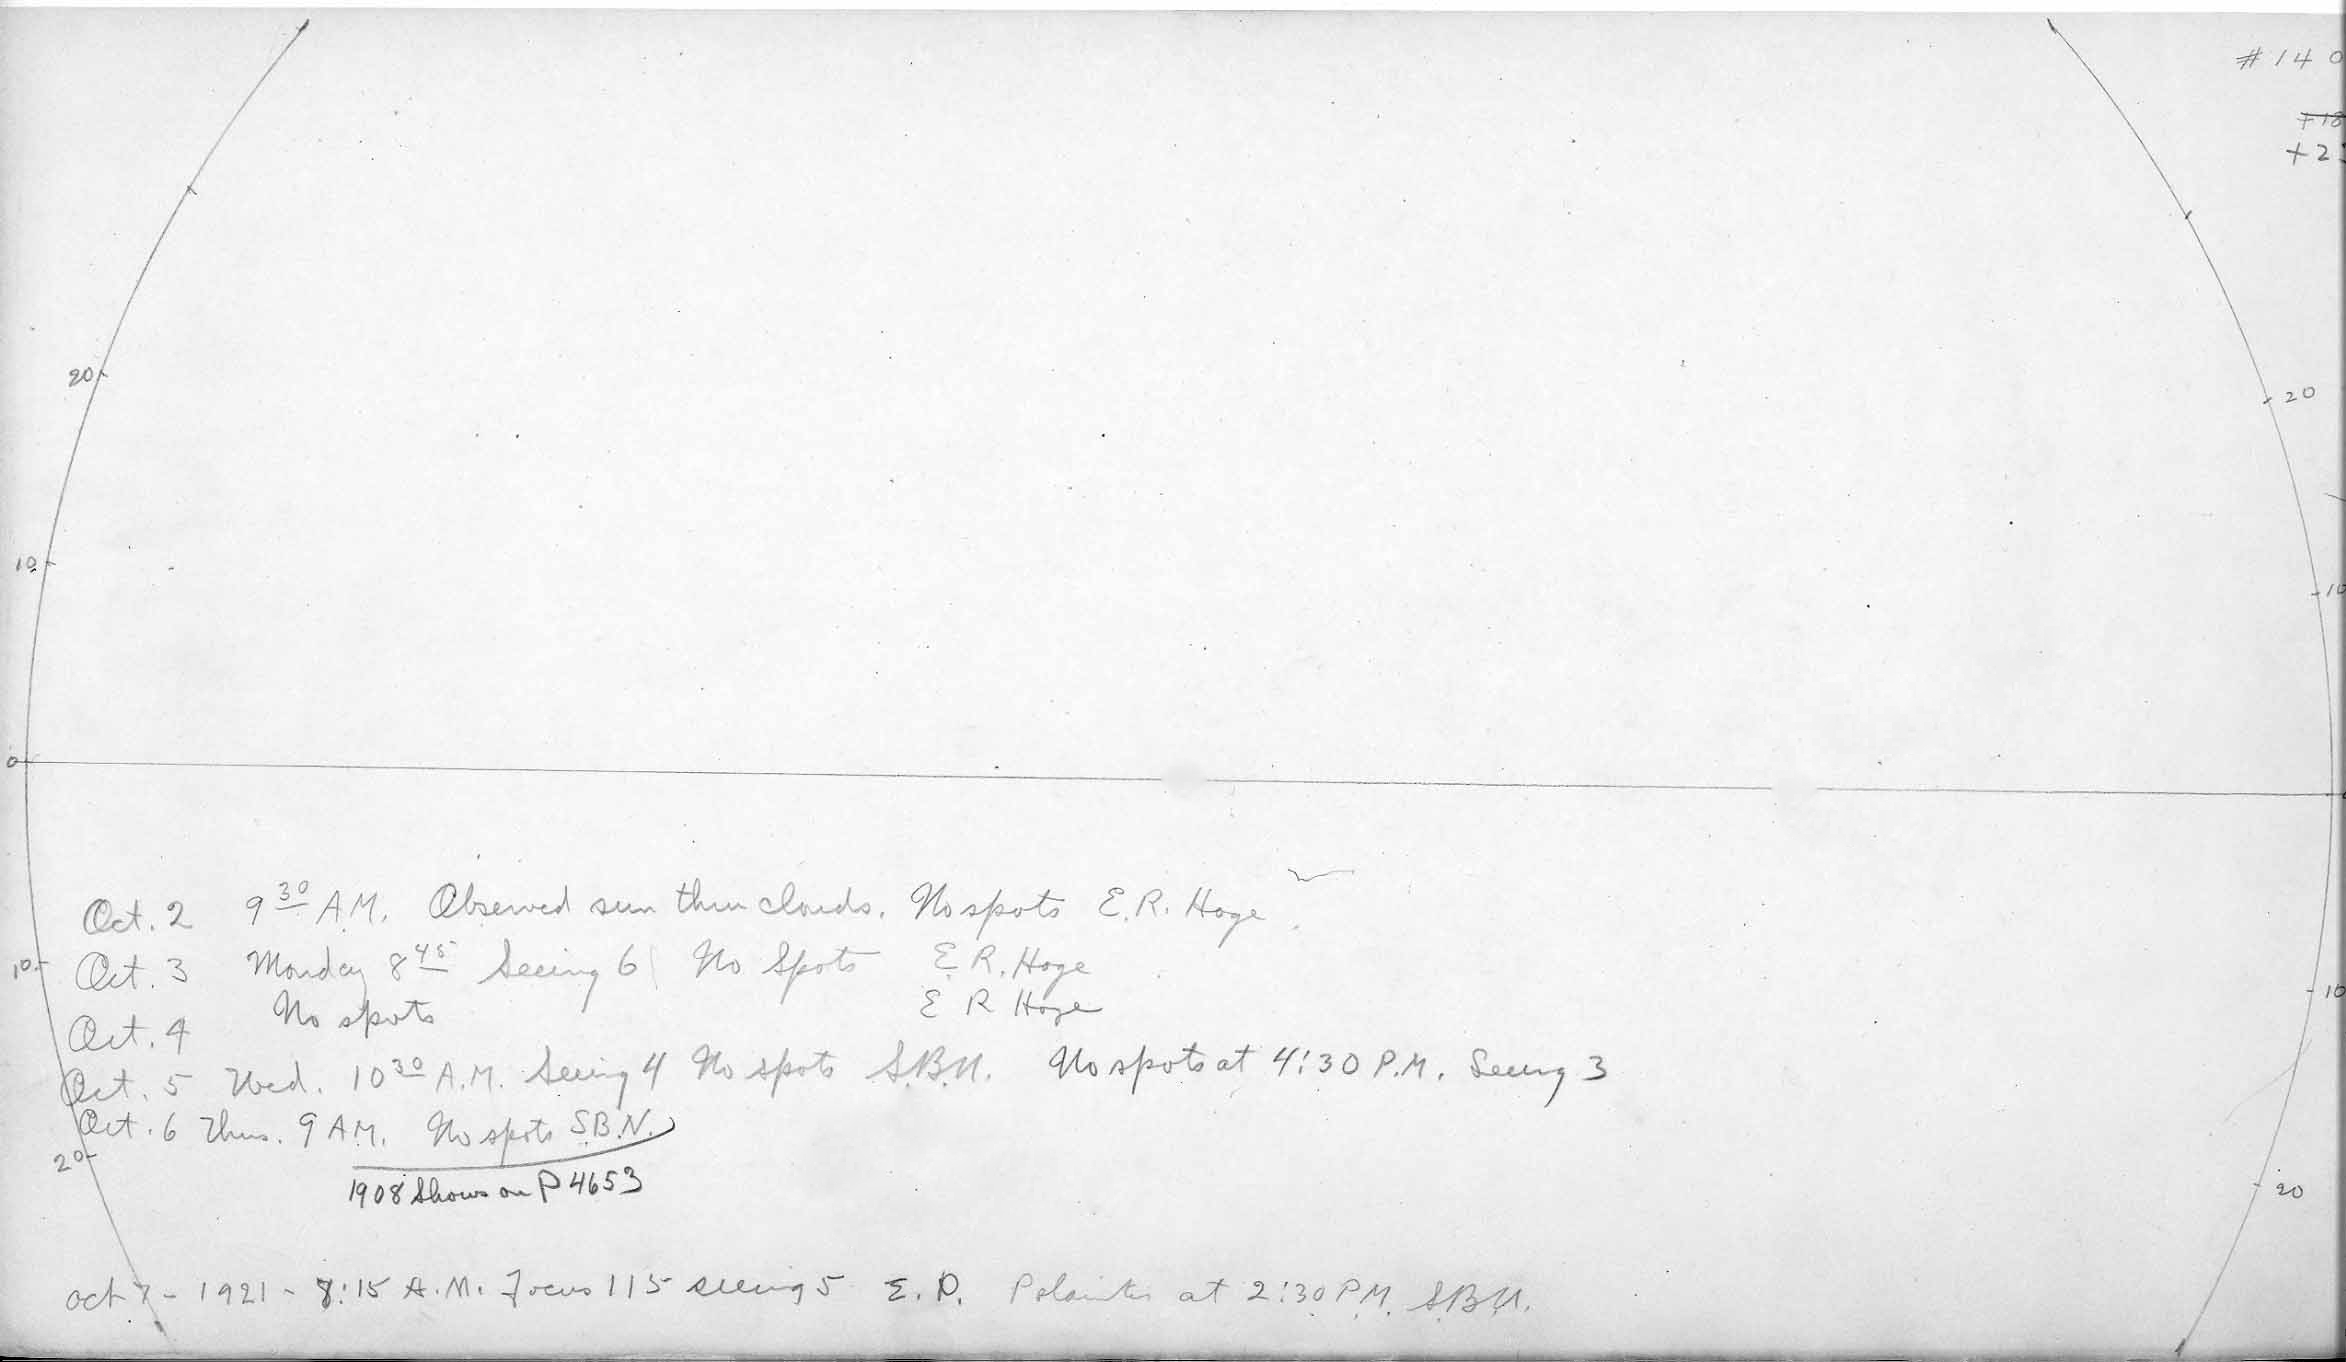 # 14 0
+18
+2
20
20
10
10
0
Oct. 2 9 30 A.M. Observed sun thru clouds. No spots E.R. Hoge
Oct. 3 Monday 8 45 Seeing 6 No Spots E.R. Hoge
Oct. 4 No spots E R Hoge
10
10
Oct. 5 Wed. 10 30 A.M. Seeing 4 No spots S.B.N. No spots at 4:30 P.M. Seeing 3
Oct. 6 Thus. 9 A.M. No spots S.B.N.
20
20
1908 Shows on P 4653
Oct 7 - 1921 - 8:15 A.M. Focus 115 seeing 5 E.P. Polarities at 2:30 P.M. S.B.N.